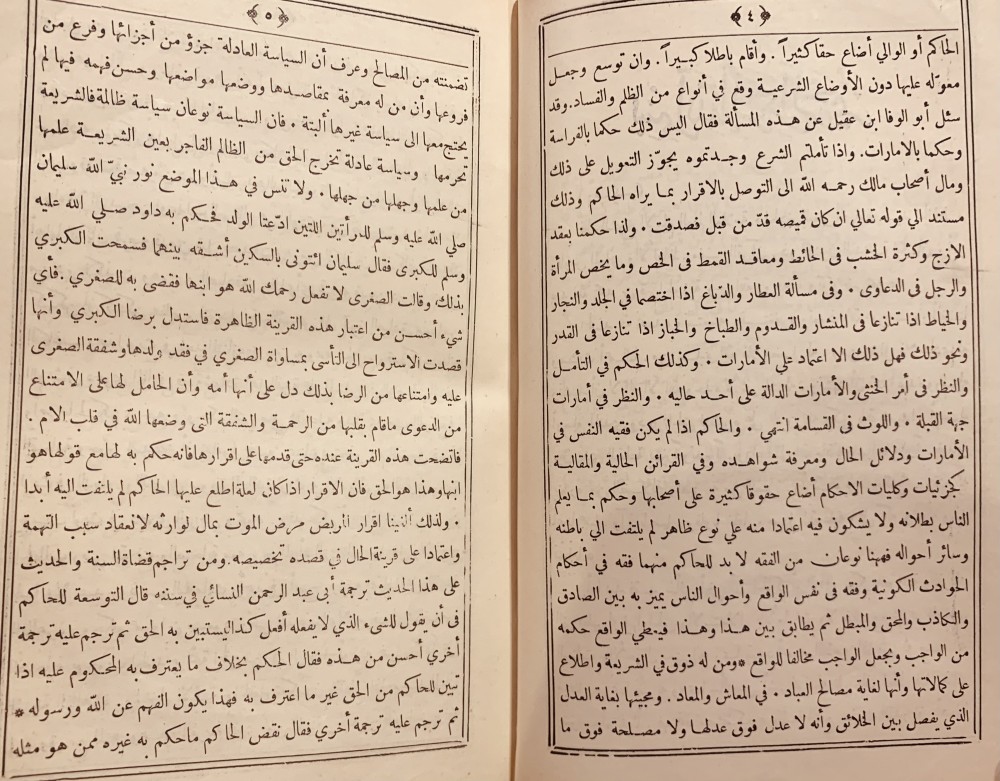 ﴿٤﴾
الحاكم أو الوالي أضاع حقا كثيراً . وأقام باطلا كبيراً . وان توسع وجعل
معوّله عليها دون الأوضاع الشرعية وقع في أنواع من الظلم والفساد. وقد
سئل أبو الوفا ابن عقيل عن هذه المسألة فقال اليس ذلك حكما بالفراسة
وحكما بالامارات. واذا تأملتم الشرع وجدتموه يجوّز التعويل على ذلك
ومال أصحاب مالك رحمه الله الى التوصل بالاقرار بما يراه الحاكم وذلك
مستند الي قوله تعالي ان كان قميصه قدّ من قبل فصدقت . ولذا حكمنا بعقد
الازج وكثرة الخشب فى الحائط ومعاقد القمط فى الخص وما يخص المرأة
والرجل فى الدعاوى . وفى مسألة العطار والدّباغ اذا اختصما في الجلد والنجار
والخياط اذا تنازعا فى المنشار والقدوم والطباخ والخباز اذا تنازعا فى القدر
ونحو ذلك فهل ذلك الا اعتماد على الأمارات . وكذلك الحكم في التأمل
والنظر فى أمر الخنثى والأمارات الدالة على أحد حاليه . والنظر في أمارات
جهة القبلة . واللوث فى القسامة انتهي . والحاكم اذا لم يكن فقيه النفس في
الأمارات ودلائل الحال ومعرفة شواهده وفي القرائن الحالية والمقالية
كجزئيات وكليات الاحكام أضاع حقوقا كثيرة على أصحابها وحكم بما يعلم
الناس بطلانه ولا يشكون فيه اعتمادا منه علي نوع ظاهر لم يلتفت الي باطنه
وسائر أحواله فههنا نوعان من الفقه لا بد للحاكم منهما فقه في أحكام
الحوادث الكونية وفقه فى نفس الواقع وأحوال الناس يميز به بين الصادق
والكاذب والمحق والمبطل ثم يطابق بين هذا وهذا فيعطي الواقع حكمه
من الواجب ويجعل الواجب مخالفا للواقع *ومن له ذوق في الشريعة واطلاع
على كمالاتها وأنها لغاية مصالح العباد . في المعاش والمعاد . ومجيئها بغاية العدل
الذي يفصل بين الخلائق وأنه لا عدل فوق عدلها ولا مصلحة فوق ما
﴿٥﴾
تضمنته من المصالح وعرف أن السياسة العادلة جزؤ من أجزائها وفرع من
فروعها وأن من له معرفة بمقاصدها ووضعها مواضعها وحسن فهمه فيها لم
يحتج معها الى سياسة غيرها ألبتة . فان السياسة نوعان سياسة ظالمة فالشريعة
تحرمها وسياسة عادلة تخرج الحق من الظالم الفاجر بعين الشريعة علمها
من علمها وجهلها من جهلها . ولا تنس في هذا الموضع نور نبيّ الله سليمان
صلي الله عليه وسلم للمرأتين اللتين ادّعتا الولد فحكم به داود صلي الله عليه
وسلم للكبرى فقال سليمان ائتونى بالسكين أشقه بينهما فسمحت الكبري
بذلك وقالت الصغرى لا تفعل رحمك الله هو ابنها فقضى به للصغري . فأي
شيء أحسن من اعتبار هذه القرينة الظاهرة فاستدل برضا الكبري وأنها
قصدت الاسترواح الى التأسى بمساواة الصغري في فقد ولدها وشفقة الصغرى
عليه وامتناعها من الرضا بذلك دل على أنها أمه وأن الحامل لها على الامتناع
من الدعوى ماقام بقلبها من الرحمة والشفقة التى وضعها الله في قلب الام .
فاتضحت هذه القرينة عنده حتى قدمها على اقرارها فانه حكم به لها مع قولها هو
ابنها وهذا هو الحق فان الاقرار اذا كان لعلة اطلع عليها الحاكم لم يلتفت اليه أبدا
. ولذلك ألغينا اقرار المريض مرض الموت بمال لوارثه لانعقاد سبب التهمة
واعتمادا على قرينة الحال في قصده تخصيصه . ومن تراجم قضاة السنة والحديث
على هذا الحديث ترجمة أبى عبد الرحمن النسائي في سننه قال التوسعة للحاكم
فى أن يقول للشيء الذي لا يفعله أفعل كذا ليستبين به الحق ثم ترجم عليه ترجمة
أخري أحسن من هذه فقال الحكم بخلاف ما يعترف به المحكوم عليه اذا
تبين للحاكم من الحق غير ما اعترف به فهذا يكون الفهم عن الله ورسوله *
ثم ترجم عليه ترجمة أخري فقال نقض الحاكم ما حكم به غيره ممن هو مثله